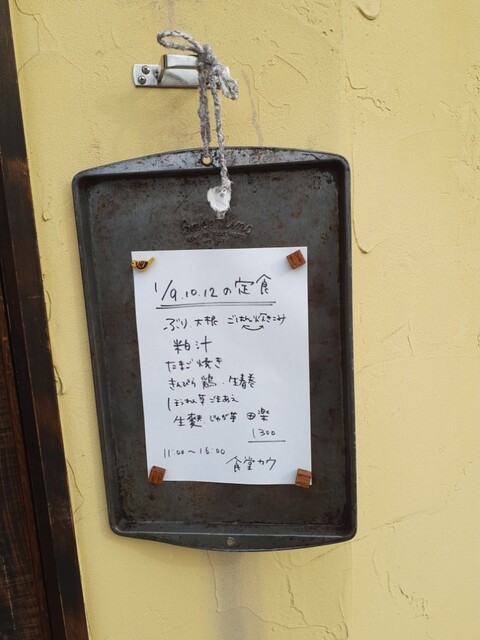 1/9.10.12の定食
ぶり 大根 ごはん炊きこみ
粕汁
たまご焼き
きんぴら 鶏.生春巻
ほうれん草ごまあえ
生麩 じゃが芋 田楽
1300
11:00〜15:00
食堂カウ